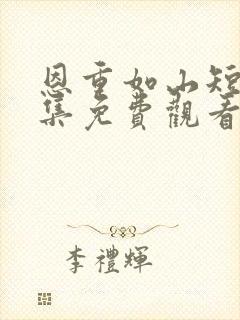 恩重如山短
集免費觀看
李禮輝